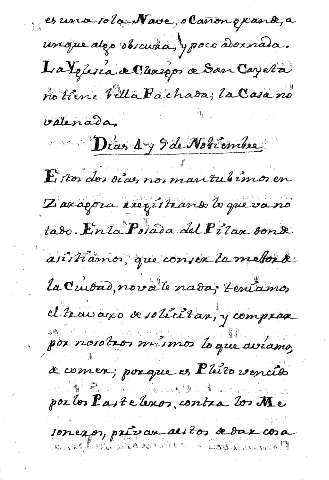 es una sola Nave, o Cañon grande, a
unque algo obscura, y poco adornada.
La Yglesia de Clerigos de San Cayeta
no tiene Villa Fachada; la Casa no
vale nada.
Dias 4 y 5 de Nobiembre
Estos dos dias nos mantubimos en
Zaragoza rexistrando lo que va no
tado. En la Posada del Pilar donde
asistiamos, que con ser la mebor de
la Ciudad, no vale nada; teniamos
el travaxo de solicitar, y comprar
por nosotros mismos lo que aviamos
de comer; porque es Pleito vencido
por los Pasteleros, contra los Me
soneros, privar a estos de dar cosa